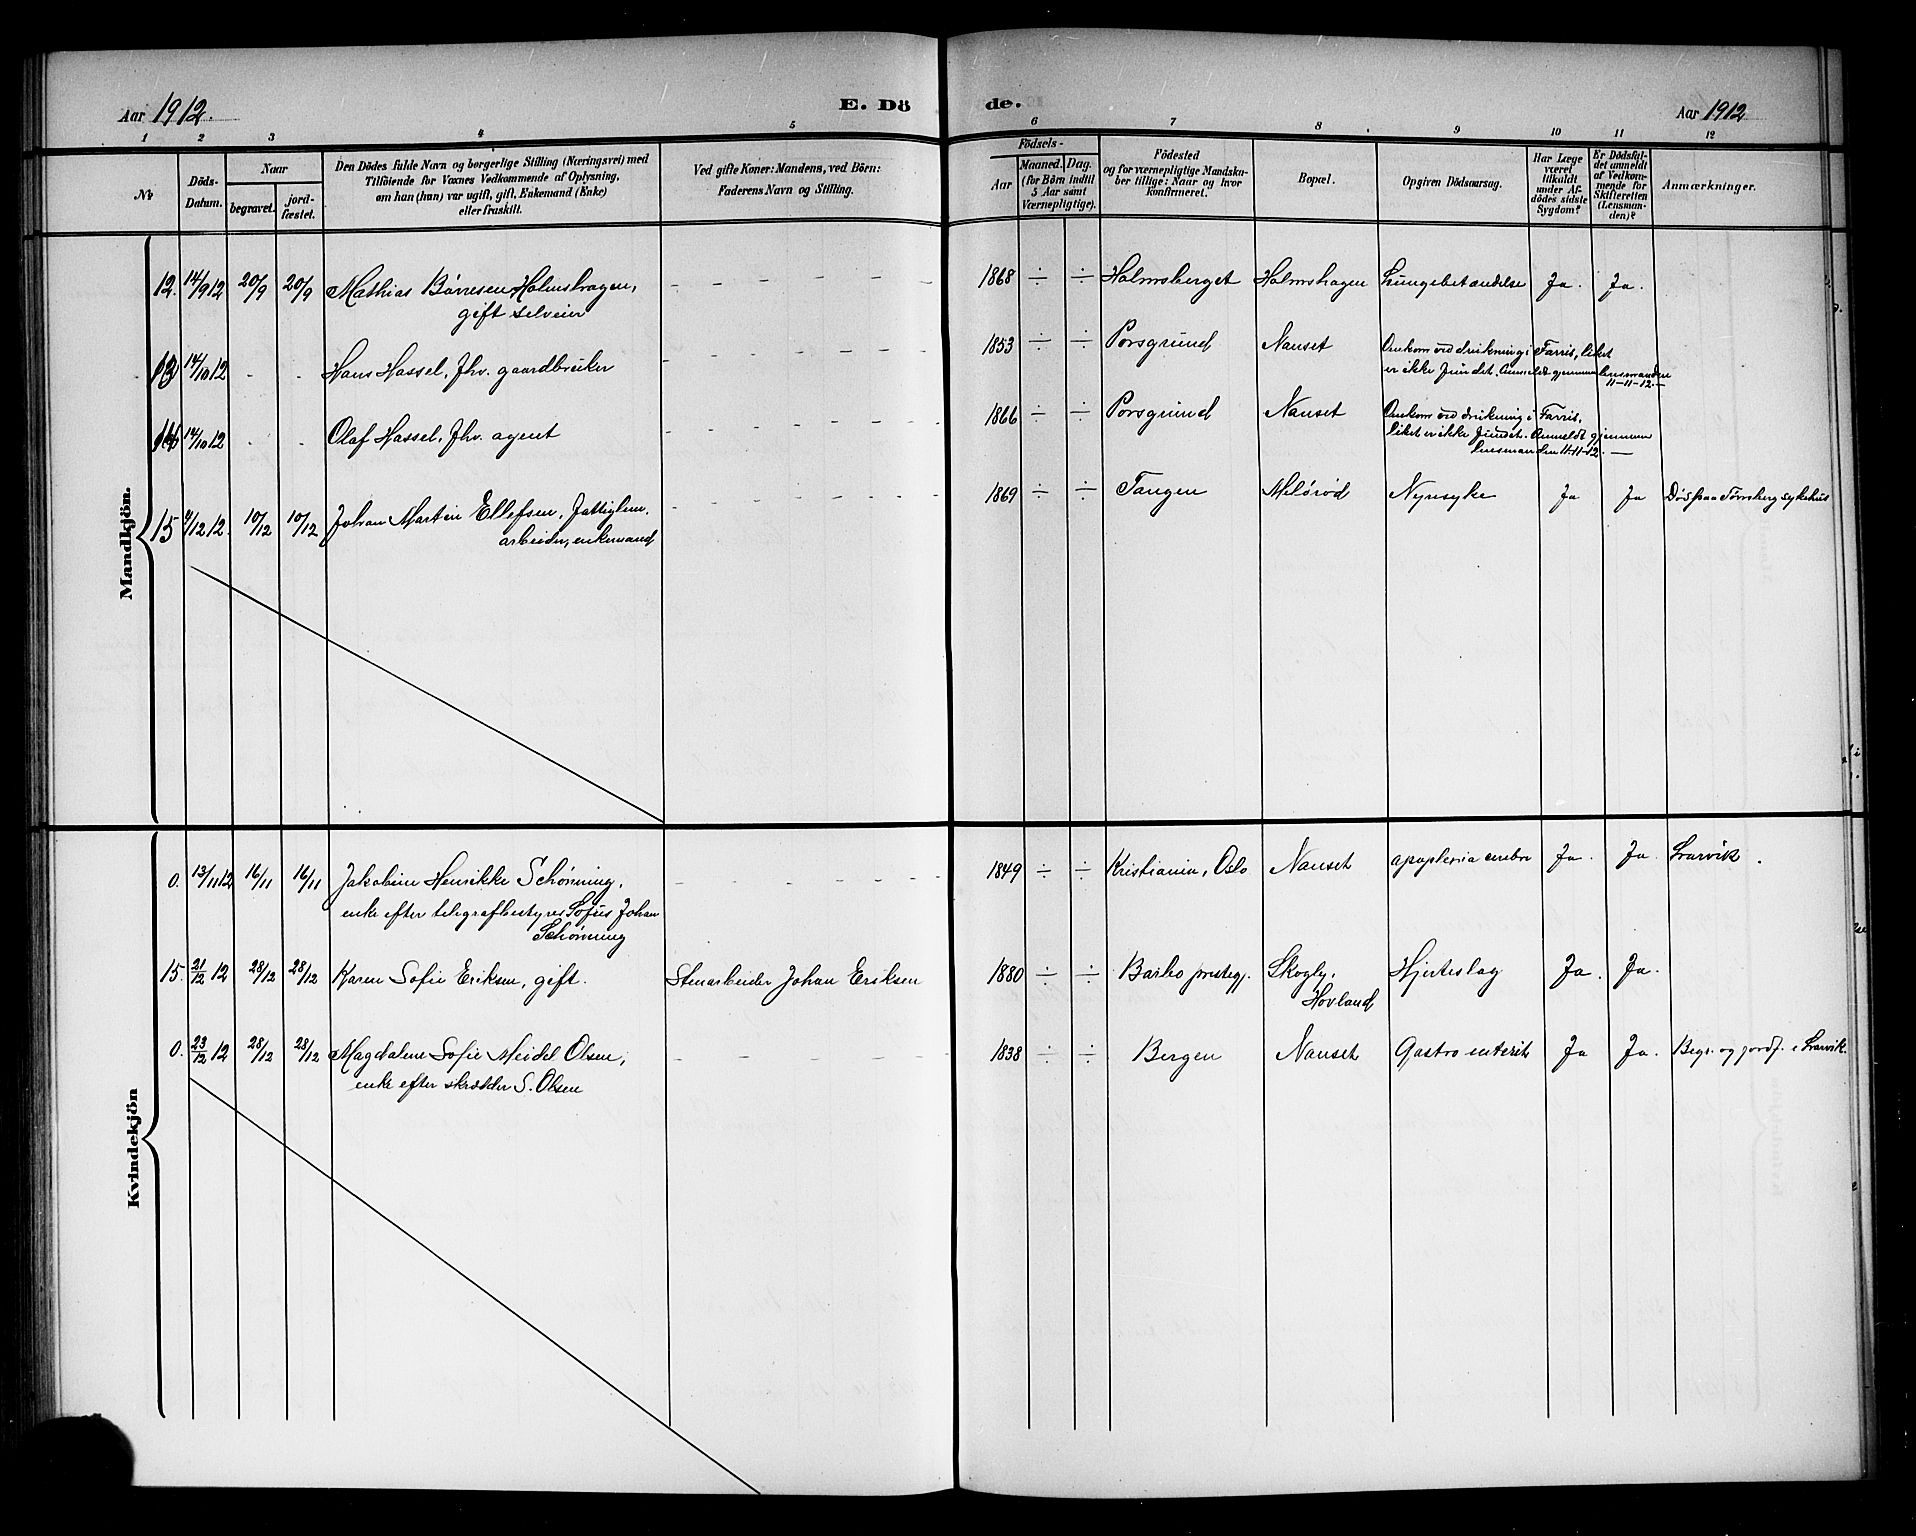 Aar 1912.
E. Dö
de.
Aar 1912
1 2 3 4 5 6 7 8 9 10 11 12
No
Döds-
Datum.
Naar
begravet.
jord-
fæstet.
Den Dödes fulde Navn og borgerlige Stilling (Næringsvei) med
Tilföiende for Voxnes Vedkommende af Oplysning,
om han (hun) var ugift, gift, Enkemand (Enke)
eller fraskilt.
Ved gifte Koner: Mandens, ved Börn:
Faderens Navn og Stilling.
Födsels-
Aar
Maaned. Dag.
(for Börn indtil
5 Aar samt
Værnepligtige).
Födested
og for værnepligtige Mandska-
ber tillige: Naar og hvor
konfirmeret.
Bopæl.
Opgiven Dödsaarsag.
Har Læge
været
tilkaldt
under Af-
dödes sidste
Sygdom?
Er Dödsfal-
det anmeldt
af Vedkom-
mende for
Skifteretten
(Lensman-
den)?
Anmærkninger.
Mandkjön.
12. 14/9 12 20/9 20/9 Mathias Børresen Holmshagen, - - - - - - 1868 ÷ ÷ Holmsberget Holmshagen Lungebetændelse Ja. Ja.
gift selveier
13 14/10 12 - - Hans Hassel, fhv. gaardbruker - - - - - - 1853 ÷ ÷ Porsgrund Nanset Omkom ved drukning i Farris, liket
er ikke fundet. Anmeldt gjennem lensmanden
11-11-12.-
14/10 12 - - Olaf Hassel, fhv. agent - - - - - - 1866 ÷ ÷ Porsgrund Nanset Omkom ved drukning i Farris,
liket er ikke fundet. Anmeldt gjennem
lensmanden 11-11-12. -
15 /12 12. 10/12 10/12 Johan Martin Ellefsen, fattiglem. - - - - - - 1869 ÷ ÷ Tangen Melörød Nyresyke Ja Ja Død paa Tønsberg sykehus
arbeider, enkemand
Kvindekjön
0. 13/11 12 16/11 16/11 Jakobine Henrikke Schønning, - - - - - - 1849 ÷ ÷ Kristiania, Oslo Nanset apoplexia cerebri Ja. Ja. Larvik.
enke efter telegrafbestyrer Sofus Johan
Schønning
15. 21/12 12 28/12 28/12 Karen Sofie Eriksen, gift. Stenarbeider Johan Eriksen 1880 ÷ ÷ Barbo prestegj. Skogly, Hjerteslag Ja. Ja.
Hovland
0. 23/12 12 28/12 28/12 Magdalene Sofie Meidel Olsen, - - - - - - 1838 ÷ ÷ Bergen Nanset Gastro enterit Ja Ja. Begr. og jordf. i Larvik.
enke efter skrædder S. Olsen